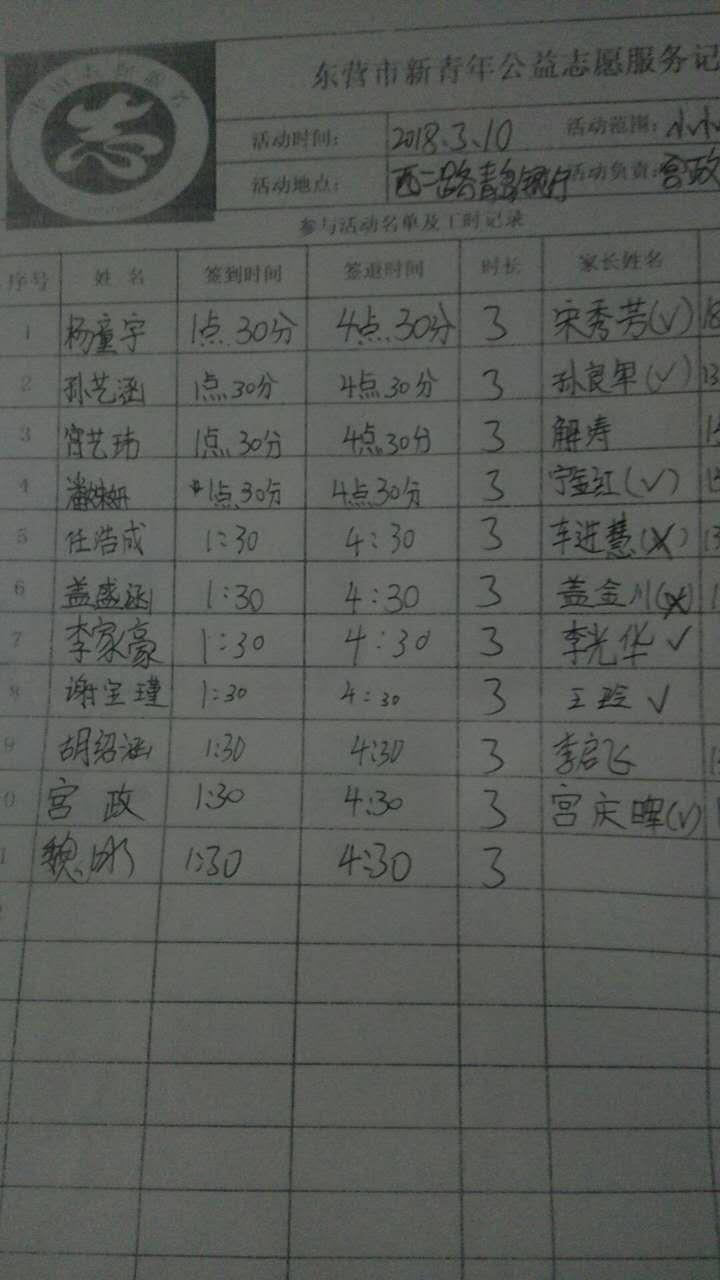 东营市新青年公益志愿服务记
活动时间： 2018.3.10 活动范围：小小
活动地点： 西二路青岛银行 活动负责：宫政
参与活动名单及工时记录
序号 姓名 签到时间 签退时间 时长 家长姓名
1 杨童宇 1点30分 4点30分 3 宋秀芳(√) 18
2 孙艺涵 1点30分 4点30分 3 孙良军(√) 13
3 宫艺玮 1点30分 4点30分 3 解涛
4 1点30分 4点30分 3 宁金红(√)
5 任浩成 1:30 4:30 3 车进慧(×) 13
6 盖盛涵 1:30 4:30 3 盖金川(×)
7 李家豪 1:30 4:30 3 李光华 √
8 谢宝瑾 1:30 4:30 3 王玲 √
9 胡绍涵 1:30 4:30 3 李启飞
0 宫政 1:30 4:30 3 宫庆晖(√)
1 魏 1:30 4:30 3